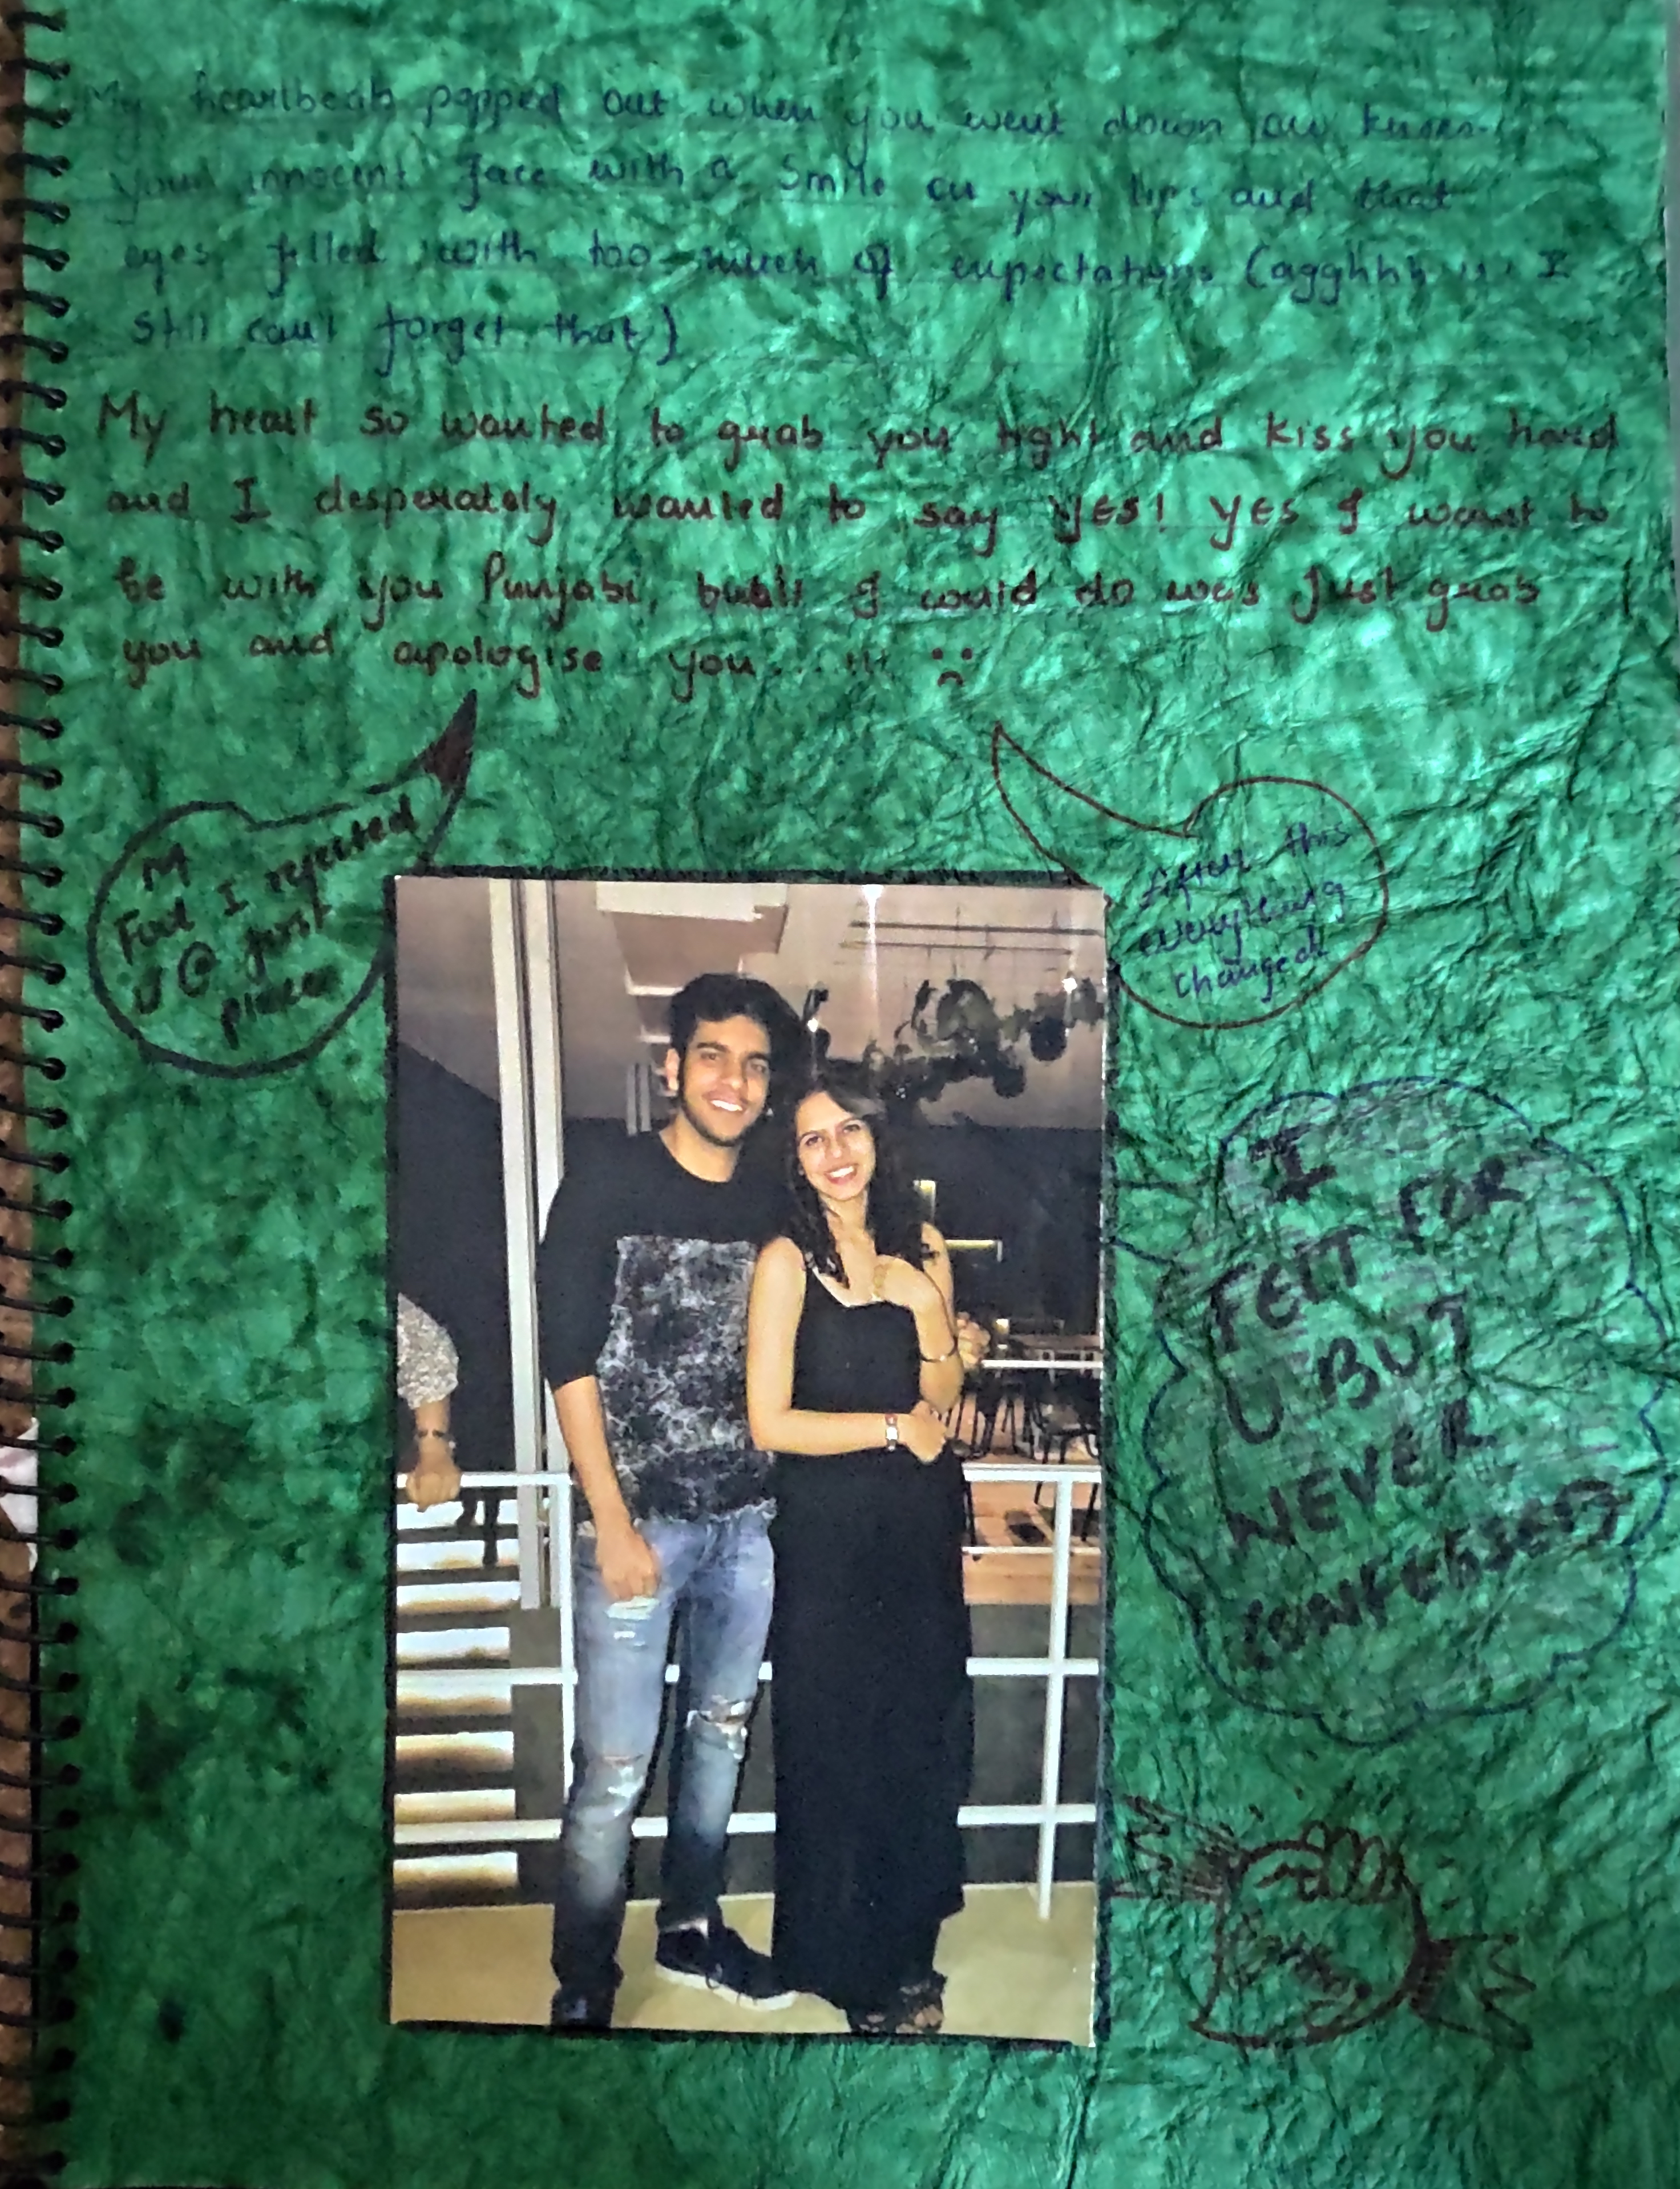 My heartbeats popped out when you went down on knees.
your innocent face with a smile on your lips and that
eyes filled with too much of expectations (agghhh !!! I
still can't forget that)
My heart so wanted to grab you tight and kiss you hard
and I desperately wanted to say YES! YES I want to
be with you Punjabi, but I could do was just grab
you and apologise you
M
Fool I rejected
U @ first
place
After this
everything
changed
I
FELT FOR
U BUT
NEVER
CONFESSED